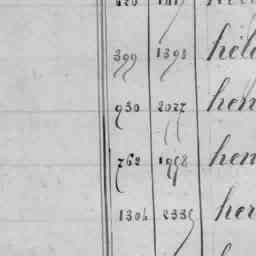 399 1398 héle
930 2027 hen
762 1958 hen
1304 2335 her